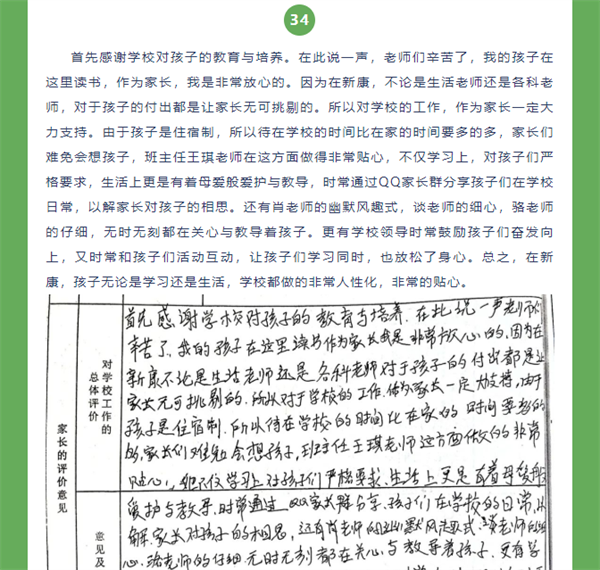 34
首先感谢学校对孩子的教育与培养。在此说一声，老师们辛苦了，我的孩子在
这里读书，作为家长，我是非常放心的。因为在新康，不论是生活老师还是各科老
师，对于孩子的付出都是让家长无可挑剔的。所以对学校的工作，作为家长一定大
力支持。由于孩子是住宿制，所以待在学校的时间比在家的时间要多的多，家长们
难免会想孩子，班主任王琪老师在这方面做得非常贴心，不仅学习上，对孩子们严
格要求，生活上更是有着母爱般爱护与教导，时常通过QQ家长群分享孩子们在学校
日常，以解家长对孩子的相思。还有肖老师的幽默风趣式，谈老师的细心，骆老师
的仔细，无时无刻都在关心与教导着孩子。更有学校领导时常鼓励孩子们奋发向
上，又时常和孩子们活动互动，让孩子们学习同时，也放松了身心。总之，在新
康，孩子无论是学习还是生活，学校都做的非常人性化，非常的贴心。
家长的评价意见
对学校工作的
总体评价
意见及
首先感谢学校对孩子的教育与培养，在此说一声老师们
辛苦了，我的孩子在这里读书作为家长我是非常放心的，因为在
新康不论是生活老师还是各科老师对于孩子的付出都是让
家长无可挑剔的，所以对于学校的工作，做为家长一定大力支持，由于
孩子是住宿制，所以待在学校的时间比在家的时间要多的
多，家长们难免会想孩子，班主任王琪老师这方面做的非常
贴心，不仅学习上对孩子们严格要求，生活上更是有着母爱般
爱护与教导，时常通过QQ家长群分享，孩子们在学校的日常，以
解家长对孩子的相思，还有肖老师的幽默风趣式，谈老师的细
心，骆老师的仔细，无时无刻都在关心与教导着孩子，更有学